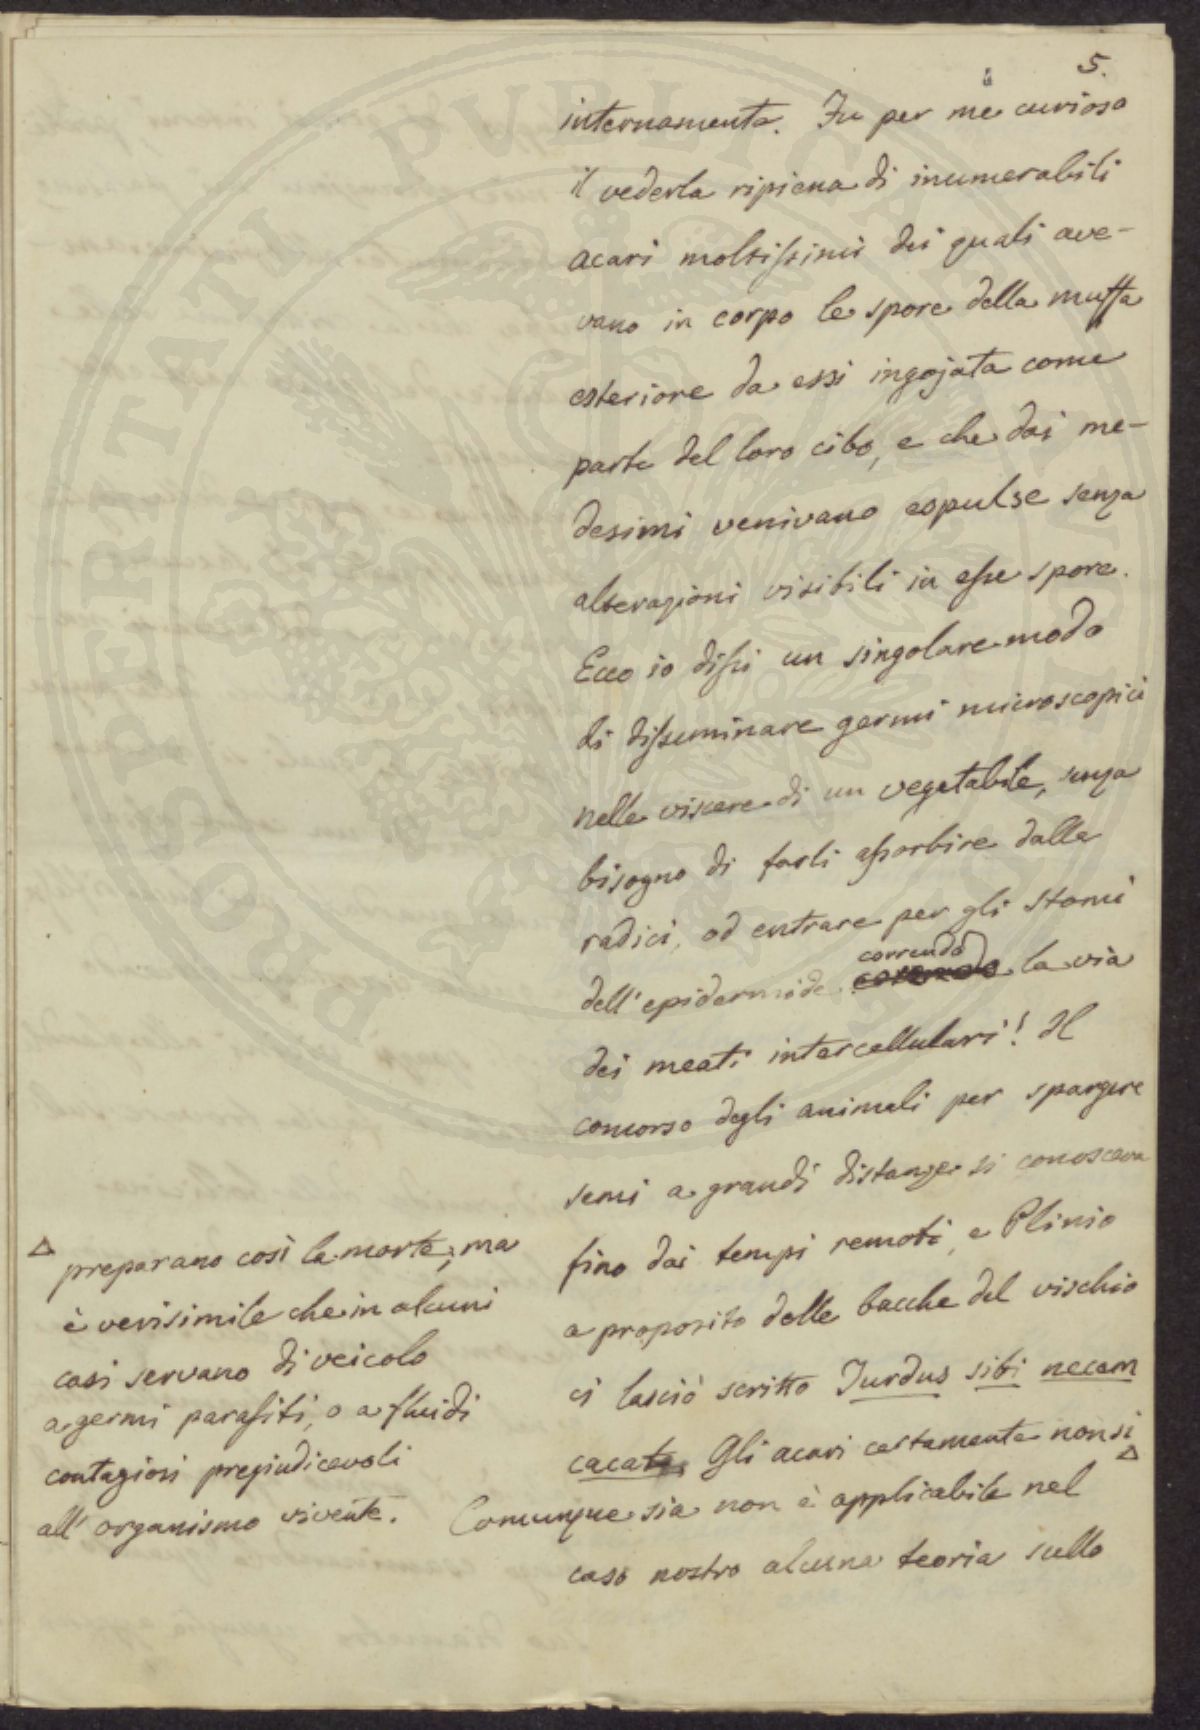 5.
internamente. Fu per me curioso
il vederla ripiena di inumerabili
acari moltissimi dei quali ave-
vano in corpo le spore della muffa
esteriore da essi ingojata come
parte del loro cibo, e che dai me-
desimi venivano espulse senza
alterazioni visibili in esse spore.
Ecco io dissi un singolare modo
di disseminare germi microscopici
nelle viscere di un vegetabile, senza
bisogno di farli assorbire dalle
radici, od entrare per gli stomi
dell'epidermide correndo la via
dei meati intercellulari! Il
concorso degli animali per spargere
semi a grandi distanze si conosceva
fino dai tempi remoti, e Plinio
a proposito delle bacche del vischio
ci lasciò scritto Turdus sibi necem
cacat. Gli acari certamente non si
△
Comunque sia non è applicabile nel
caso nostro alcuna teoria sullo
△ preparano così la morte, ma
è verisimile che in alcuni
casi servano di veicolo
a germi parassiti, o a fluidi
contagiosi pregiudicevoli
all'organismo vivente.
PROSPERITATI PVBLICAE